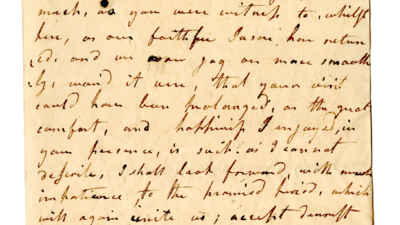 much, as you were witness to, whilst
here, as our faithful Jason, has return
ed, and we now jog on more smooth
ly, wou'd it were, that your visit
could have been prolonged, as the great
comfort, and happiness I enjoyed, in
your presence, is such as I cannot
describe, I shall look forward, with much
impatience, to the promised period, which
will again unite us; accept dearest